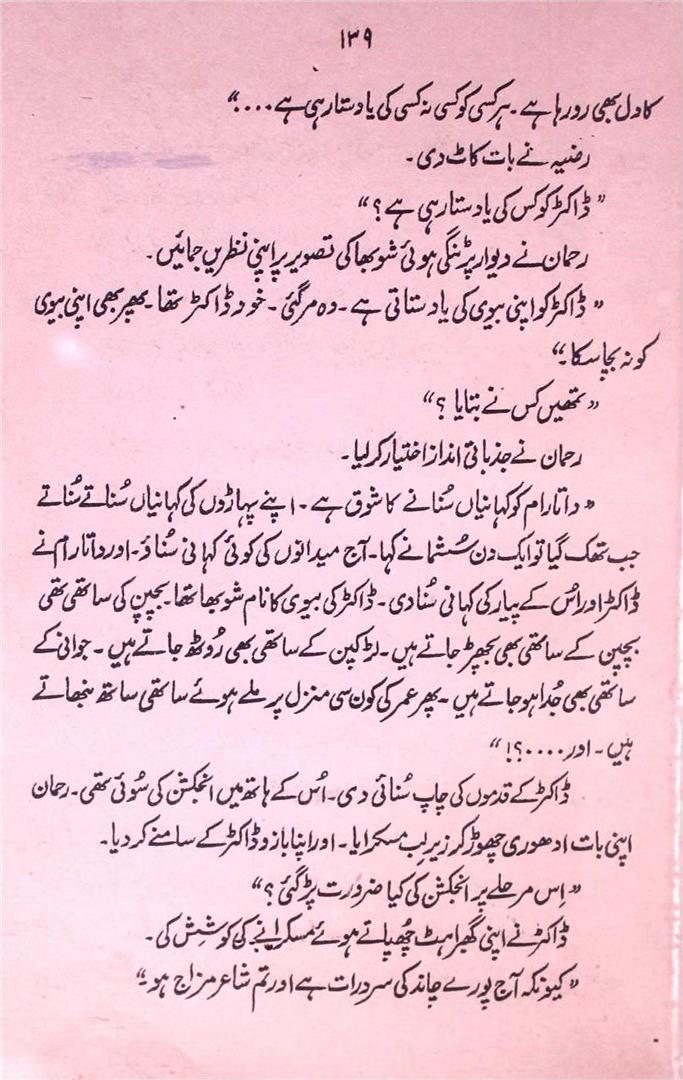 ۱۳۹
کا دل بھی رو رہا ہے۔ ہر کسی کو کسی نہ کسی کی یاد ستا رہی ہے....“
رضیہ نے بات کاٹ دی۔
”ڈاکٹر کو کس کی یاد ستا رہی ہے؟“
رحمان نے دیوار پر ٹنگی ہوئی شوبھا کی تصویر پر اپنی نظریں جمائیں۔
”ڈاکٹر کو اپنی بیوی کی یاد ستاتی ہے۔ وہ مر گئی۔ خود ڈاکٹر تھا۔ پھر بھی اپنی بیوی
کو نہ بچا سکا۔“
”تمھیں کس نے بتایا؟“
رحمان نے جذباتی انداز اختیار کر لیا۔
”داتا رام کو کہانیاں سُنانے کا شوق ہے۔ اپنے پہاڑوں کی کہانیاں سُناتے سُناتے
جب تھک گیا تو ایک دن سُشما نے کہا۔ آج میدانوں کی کوئی کہانی سُناؤ۔ اور داتا رام نے
ڈاکٹر اور اُس کے پیار کی کہانی سُنا دی۔ ڈاکٹر کی بیوی کا نام شوبھا تھا۔ بچپن کی ساتھی تھی
بچپن کے ساتھی بھی بچھڑ جاتے ہیں۔ لڑکپن کے ساتھی بھی رُوٹھ جاتے ہیں۔ جوانی کے
ساتھی بھی جُدا ہو جاتے ہیں۔ پھر عمر کی کون سی منزل پر ملے ہوئے ساتھی ساتھ نبھاتے
ہیں۔ اور....؟!“
ڈاکٹر کے قدموں کی چاپ سُنائی دی۔ اُس کے ہاتھ میں انجکشن کی سُوئی تھی۔ رحمان
اپنی بات ادھوری چھوڑ کر زیرِ لب مسکرایا۔ اور اپنا بازو ڈاکٹر کے سامنے کر دیا۔
”اِس مرحلے پر انجکشن کی کیا ضرورت پڑ گئی؟“
ڈاکٹر نے اپنی گھبراہٹ چُھپاتے ہوئے مسکرانے کی کوشِش کی۔
”کیونکہ آج پورے چاند کی سرد رات ہے اور تم شاعر مزاج ہو۔“